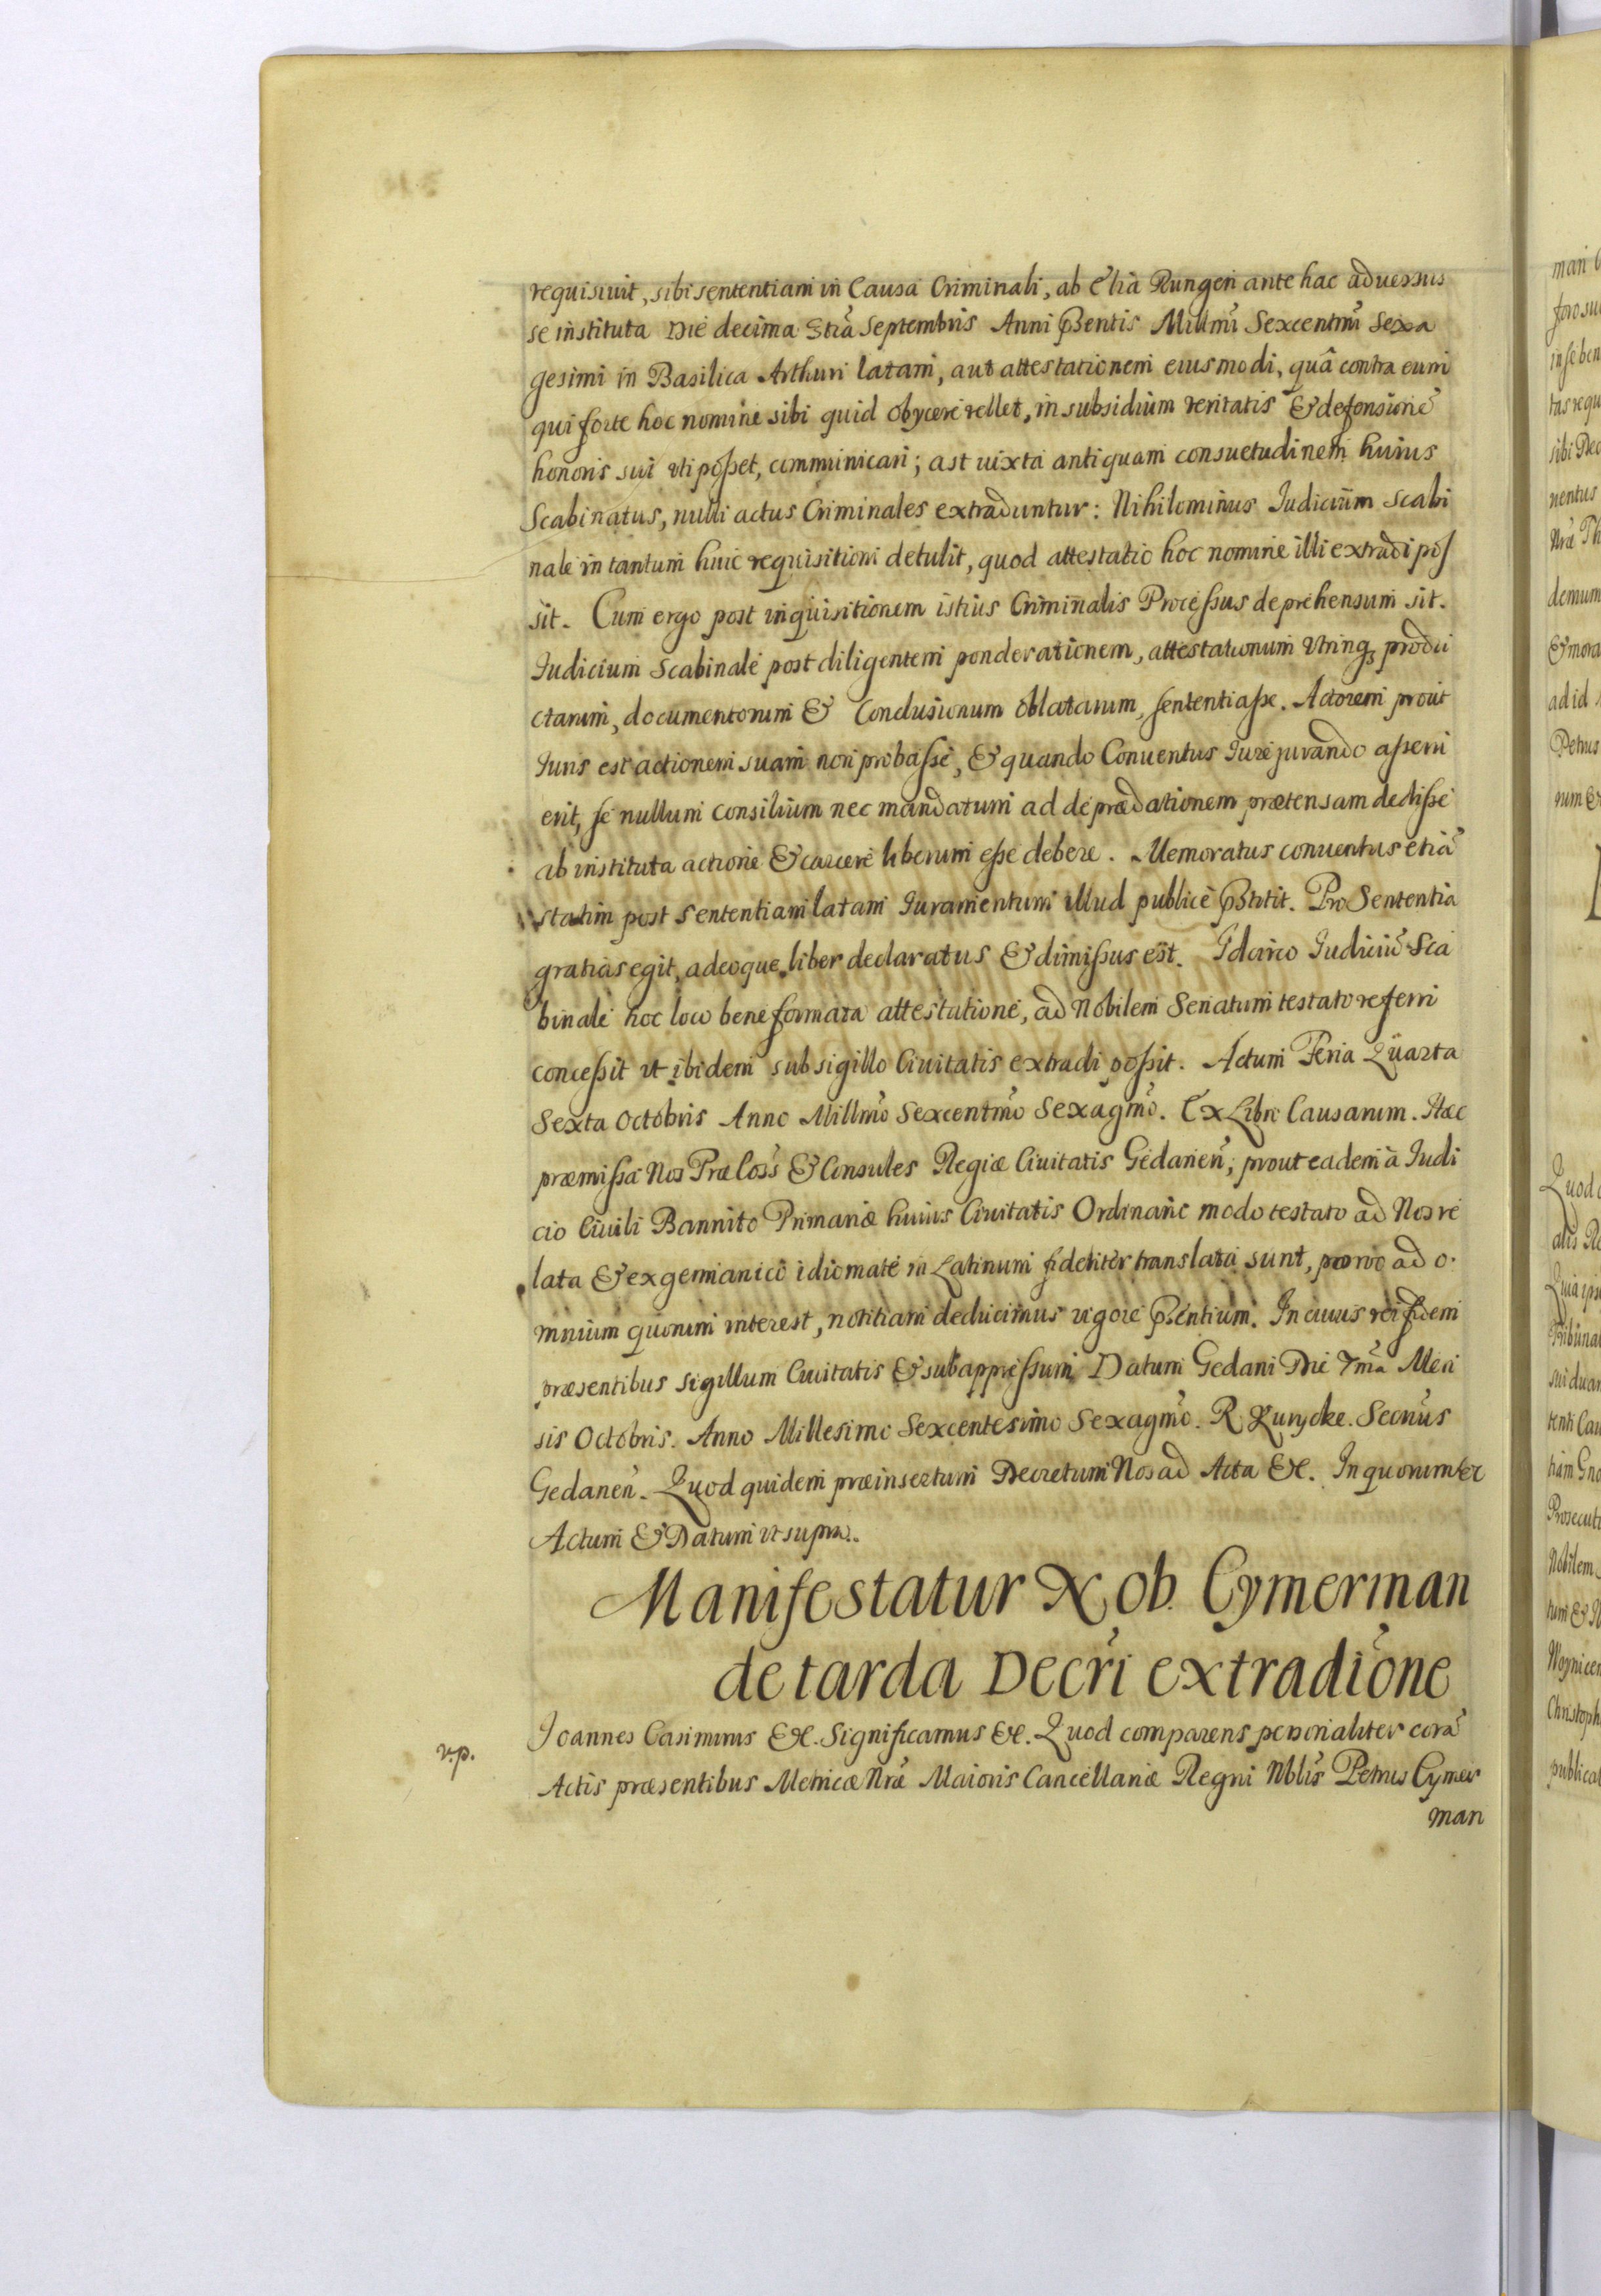 requisiuit, sibi sententiam in Causa Criminali, ab Elia Rungen ante hac aduersus
se instituta Die decima 3tia Septembris Anni Pñtis Millmi Sexcentmi Sexa
gesimi in Basilica Arthuri latam, aut attestationem eiusmodi, quâ contra eum
qui forte hoc nomine sibi quid obycere vellet, in subsidium veritatis & defensione
honoris sui vti poßet, communicari; ast iuxta antiquam consuetudinem huius
Scabinatus, nulli actus Criminales extraduntur: Nihilominus Iudicium Scabi
nale in tantum huic requisitioni detulit, quod attestatio hoc nomine illi extradi pos
sit. Cum ergo post inquisitionem istius Criminalis Proceßus deprehensum sit.
Iudicium Scabinale post diligentem ponderationem, attestationum Vtrinqз produ
ctarum, documentorum & Conclusionum oblatarum, sententiaße. Actorem prout
Iuris est actionem suam non probaße, & quando Conuentus Iure jurando aßeru
erit, se nullum consilium nec mandatum ad depraedationem praetensam dediße
ab instituta actione & carcere liberum eße debere. Memoratus conuentus etiã
statim post sententiam latam Iuramentum illud publicè pstitit. Pro Sententia
gratias egit, adeoque liber declaratus & dimißus est. Idcirco Iudiciũ Sca
binale hoc loco bene formata attestatione, ad Nobilem Senatum testato referri
conceßit vt ibidem sub sigillo Ciuitatis extradi poßit. Actum Feria Quarta
Sexta Octobris Anno Millmo Sexcentmo Sexagmo. Ex Libro Causarum. Haec
praemißa Nos Praecoss & Consules Regiae Ciuitatis Gedanen, prout eadem à Judi
cio Ciuili Bannito Primariae huius Ciuitatis Ordinario modo testato ad Nos re
lata & ex germanico idiomate in Latinum fideliter translata sunt, porro ad o
mnium quorum interest, notitiam deducimus vigore Pñtium. In cuius rei fidem
praesentibus sigillum Ciuitatis & subappreßum Datum Gedani Die 7ma Men
sis Octobris. Anno Millesimo Sexcentesimo Sexagmo. R Secrius
Gedanen. Quod quidem praeinsertum Decretum Nos ad Acta &c. In quorum &c
Actum & Datum vt supra.
Manifestatur N. ob. Cymerman
de tarda Decri extradione
Joannes Casimirus &c. Significamus &c. Quod comparens personaliter corã
v.p.
Actis praesentibus Metricae Nrae Maioris Cancellariae Regni Nblis Petrus Cymer
man